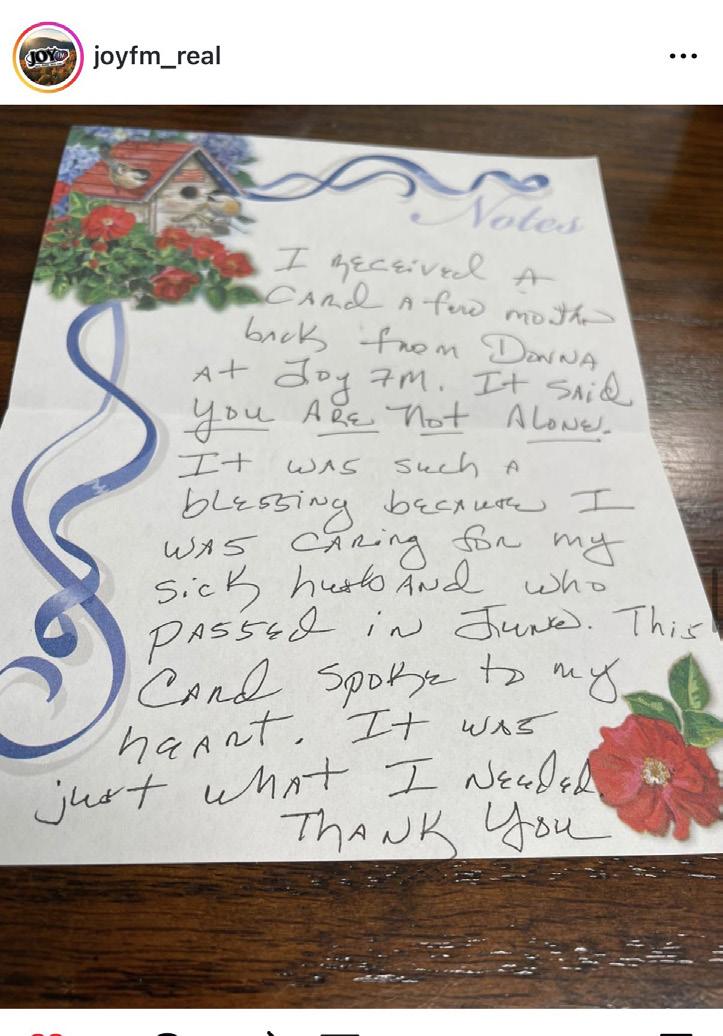 joyfm_real
JOY FM
Notes
I received a
card a few moths
back from Donna
at Joy FM. It said
you are not alone.
It was such a
blessing because I
was caring for my
sick husband who
passed in June. This
card spoke to my
heart. It was
just what I needed.
Thank you